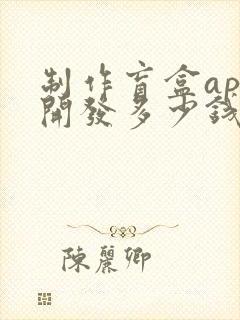 制作盲盒ap
開發多少錢
陳麗卿